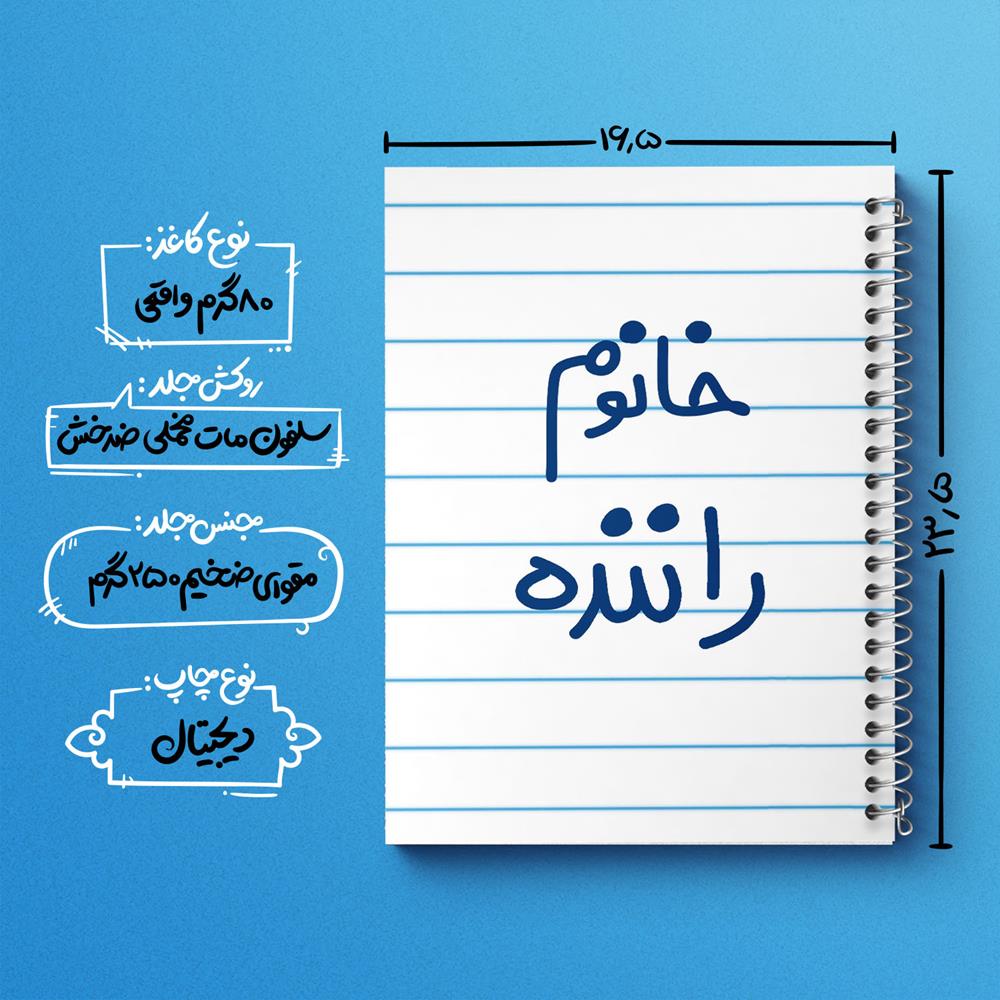 ۱۶٫۵
۲۳٫۵
خانوم
راننده
نوع کاغذ:
۸۰گرم واقعی
روکش جلد:
سلفون مات مخملی ضدخش
جنس جلد:
مقوای ضخیم ۲۵۰ گرم
نوع چاپ:
دیجیتال